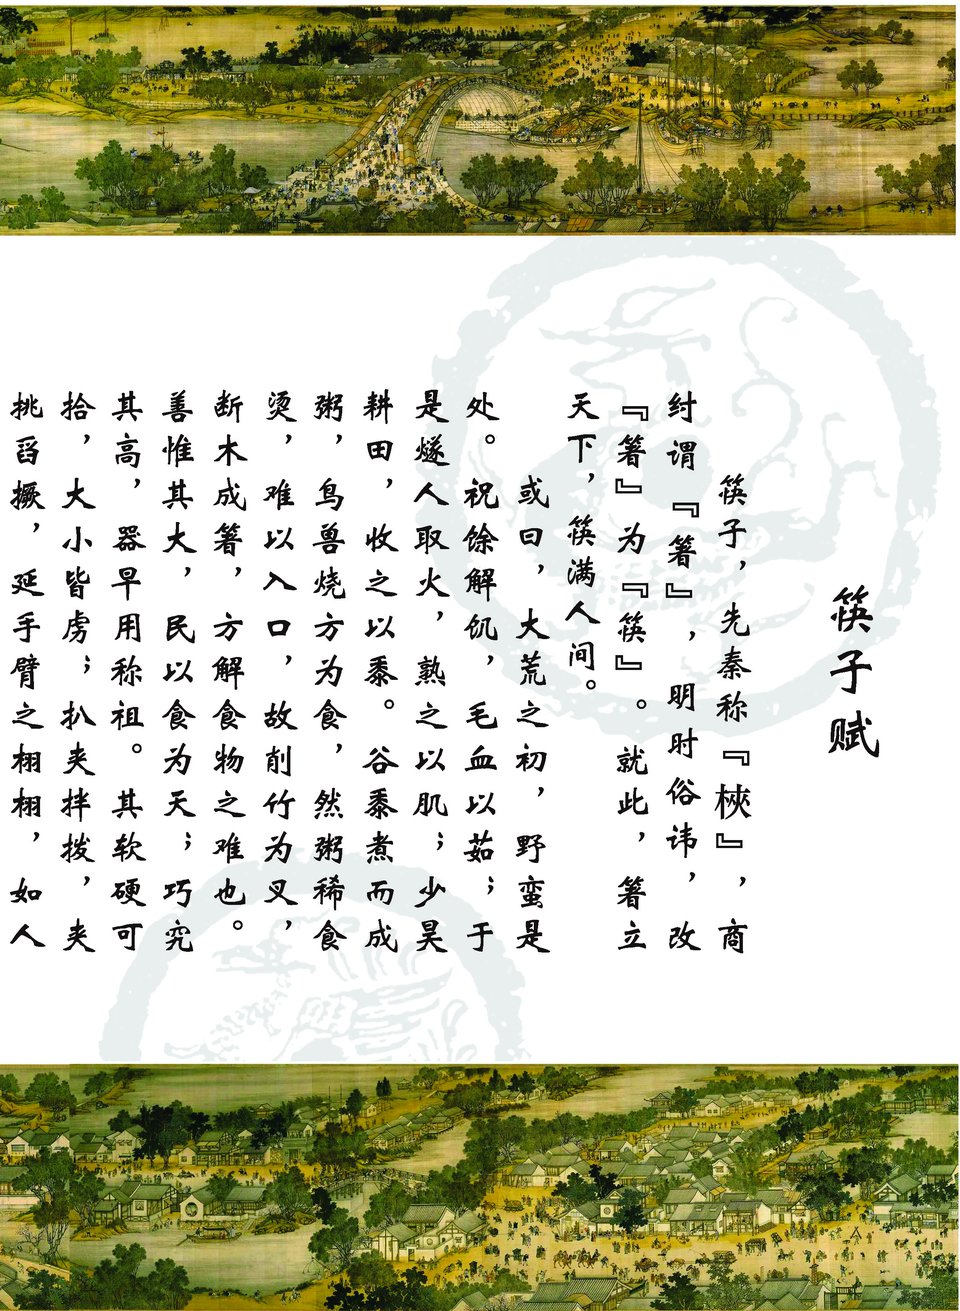 筷子赋
筷子，先秦称『梜』，商
纣谓『箸』，明时俗讳，改
『箸』为『筷』。就此，箸立
天下，筷满人间。
或曰，大荒之初，野蛮是
处。祝馀解饥，毛血以茹；于
是燧人取火，熟之以肌；少昊
耕田，收之以黍。谷黍煮而成
粥，鸟兽烧方为食，然粥稀食
烫，难以入口，故削竹为叉，
断木成箸，方解食物之难也。
善惟其大，民以食为天；巧究
其高，器早用称祖。其软硬可
拾，大小皆虏；扒夹拌拨，夹
挑舀撅，延手臂之栩栩，如人